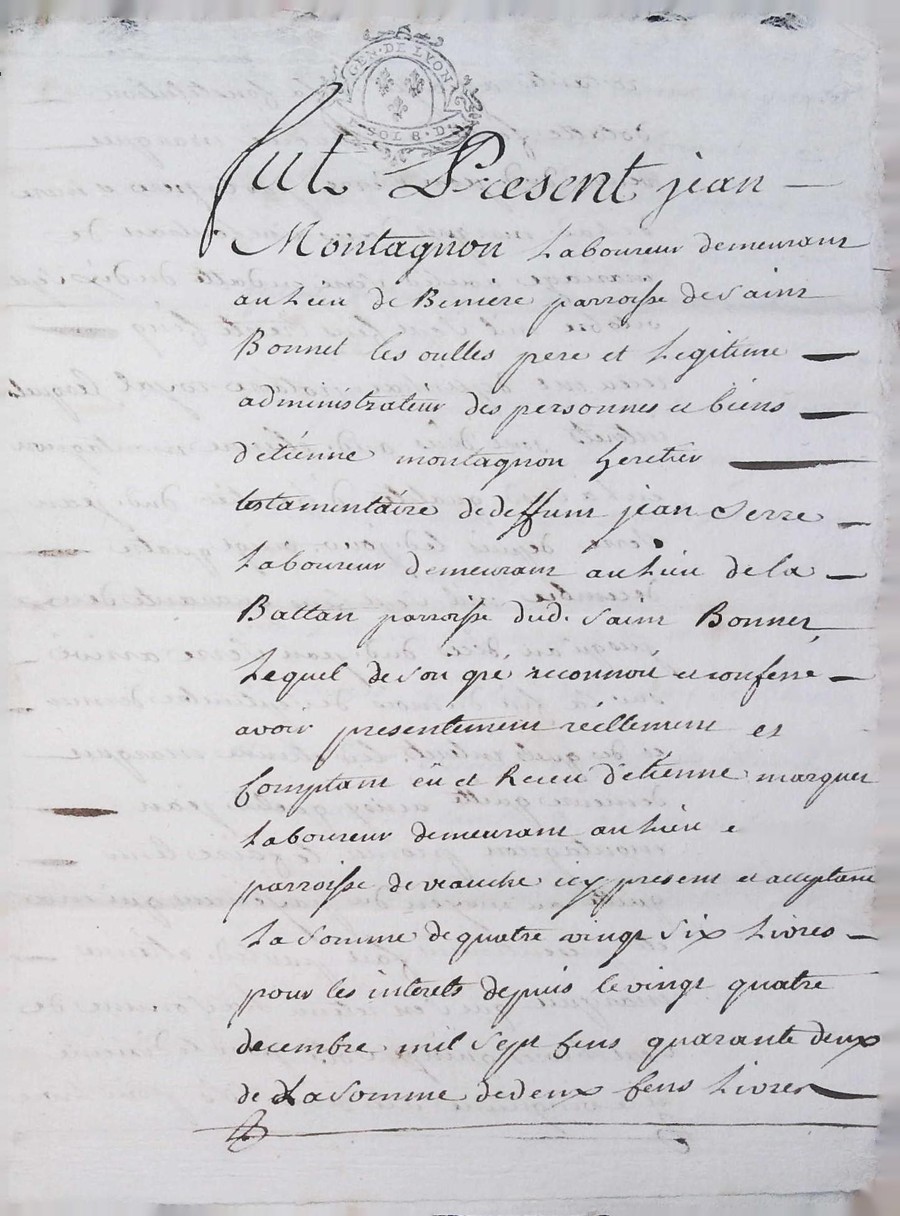 GEN · DE LYON
SOL 8 · D
fut Present jean
Montagnon Laboureur demeurant
au Lieu de parroisse de Saint
Bonnet les oulles pere et Legitime
administrateur des personnes et biens
d'etienne montagnon heretier
testamentaire de deffunt jean Serre
Laboureur demeurant au Lieu de la
Battan parroisse dud. Saint Bonnet
Lequel de son gre reconnoit et confesse
avoir presentement reellement et
Comptant eü et Receu d'etienne marquet
Laboureur demeurant au Lieu e
parroisse de veauche icy present et acceptant
La somme de quatre vingt six Livres
pour les interets depuis le vingt quatre
decembre mil sept Cens quarante deux
de La somme de deux Cens Livres